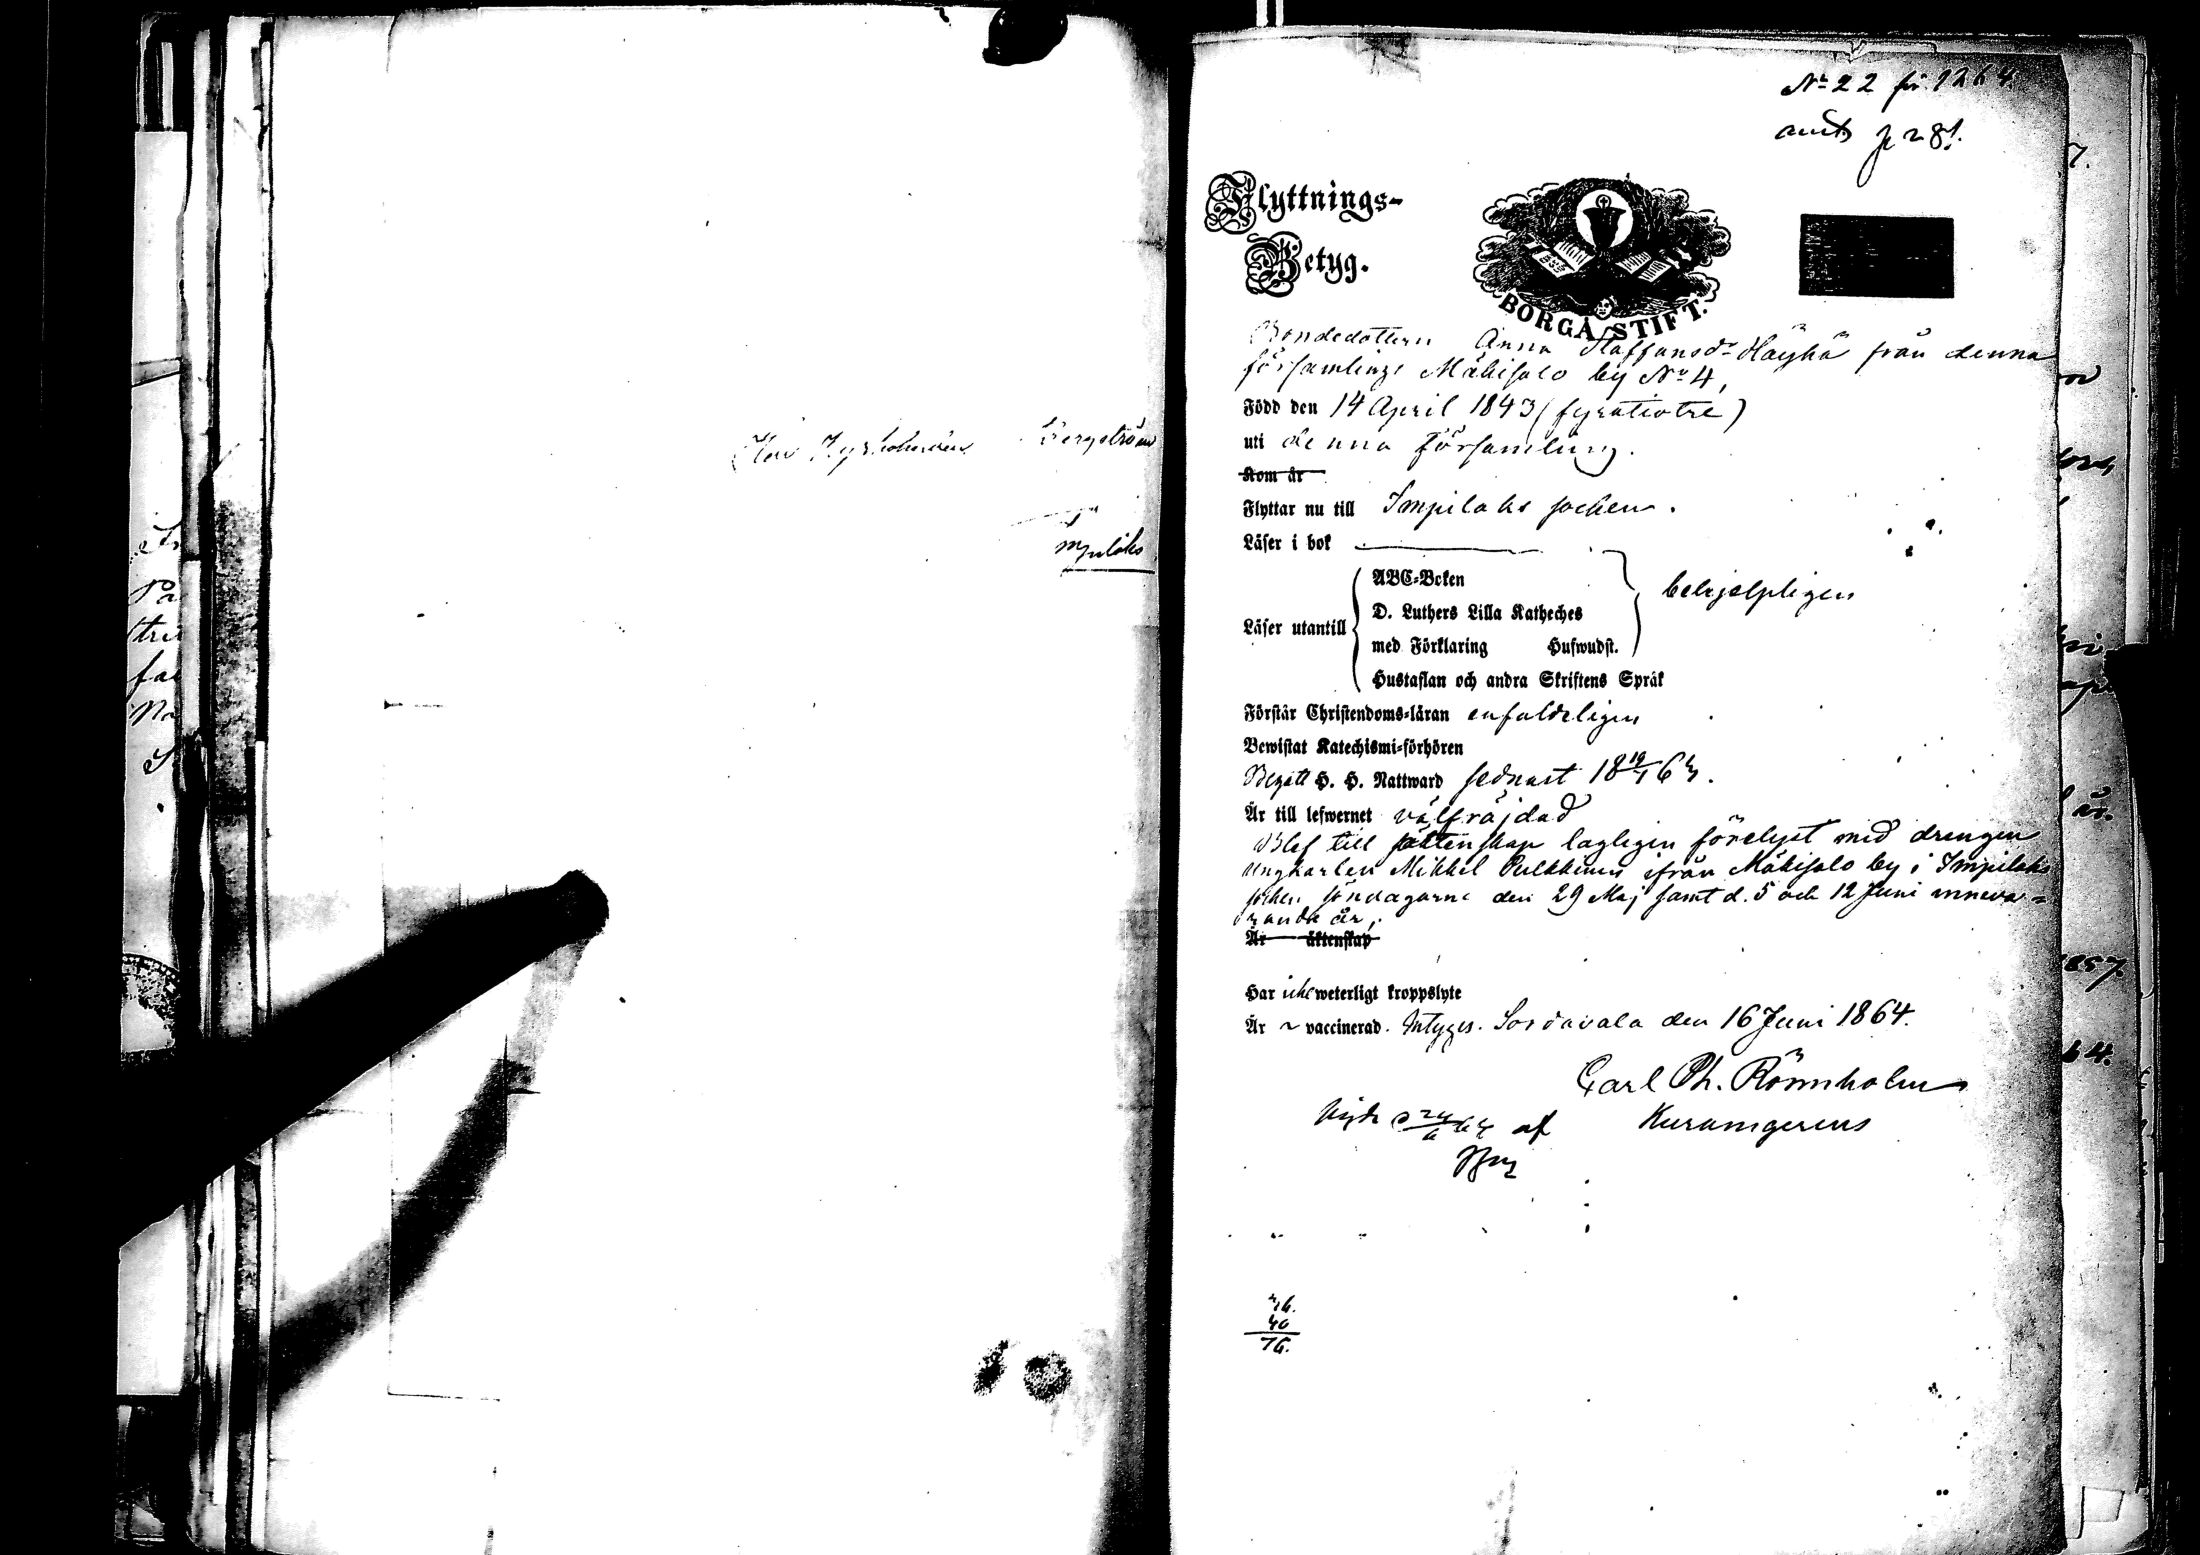 Bergström
mpilaks
No 22 för 1864.
p 281.
Flyttnings-
Betyg.
BORGÅ STIFT.
Bondedottern Anna Staffansdr Häyhä från denna
församlings Mäkisalo by No 4,
Född den 14 April 1843 (fyratiotre)
uti denna församling.
Kom år
Flyttar nu till Impilaks socken.
Läser i bok
ABC-Boken
D. Luthers Lilla Katheches
behjelpligen
Läser utantill
med Förklaring Hufwudst.
Hustaflan och andra Skriftens Språk
Förstår Christendoms-läran enfaldeligen
Bewistat Katechismi-förhören
Begått H. H. Nattward sednast 18 19/1 64.
Är till lefwernet välfräjdad
Blef till äktenskap lagligen förelyst med drengen
ungkarlen Mikkel Pulkkinen ifrån Mäkisalo by i Impilaks
socken söndagarne den 29 Maj samt d. 5 och 12 Juni inneva=
rande år.
Är äktenskap
Har icke weterligt kroppslyte
Är vaccinerad. Intygas. Sordavala den 16 Juni 1864.
Carl Ph. Rönnholm
af
40
76.